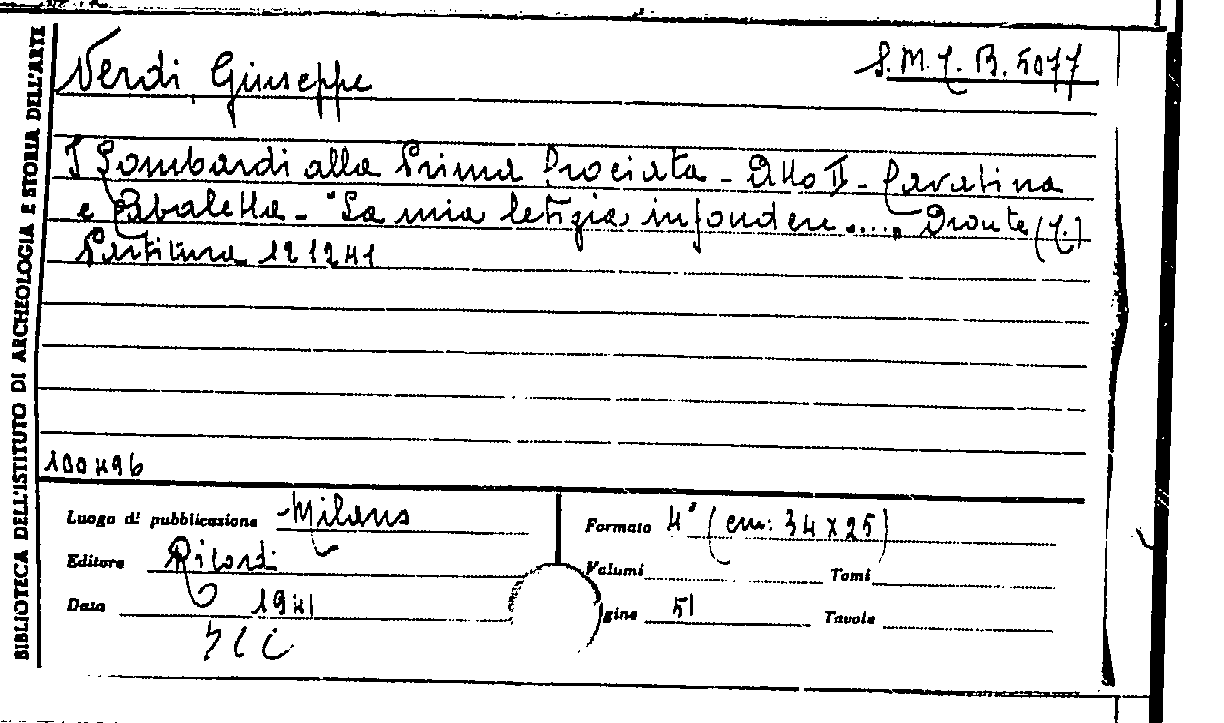 BIBLIOTECA DELL'ISTITUTO DI ARCHEOLOGIA E STORIA DELL'ARTE
Verdi, Giuseppe
S.M.
B. 5077
I Lombardi alla Prima Crociata - Atto II - Cavatina
e Cabaletta - "La mia letizia infondere .... Oronte (T.)
Partitura 121241
Luogo di pubblicazione Milano
Formato 4° (cm: 34 x 25)
Editore Ricordi
Volumi
Tomi
Data 1941
gine 51
Tavole